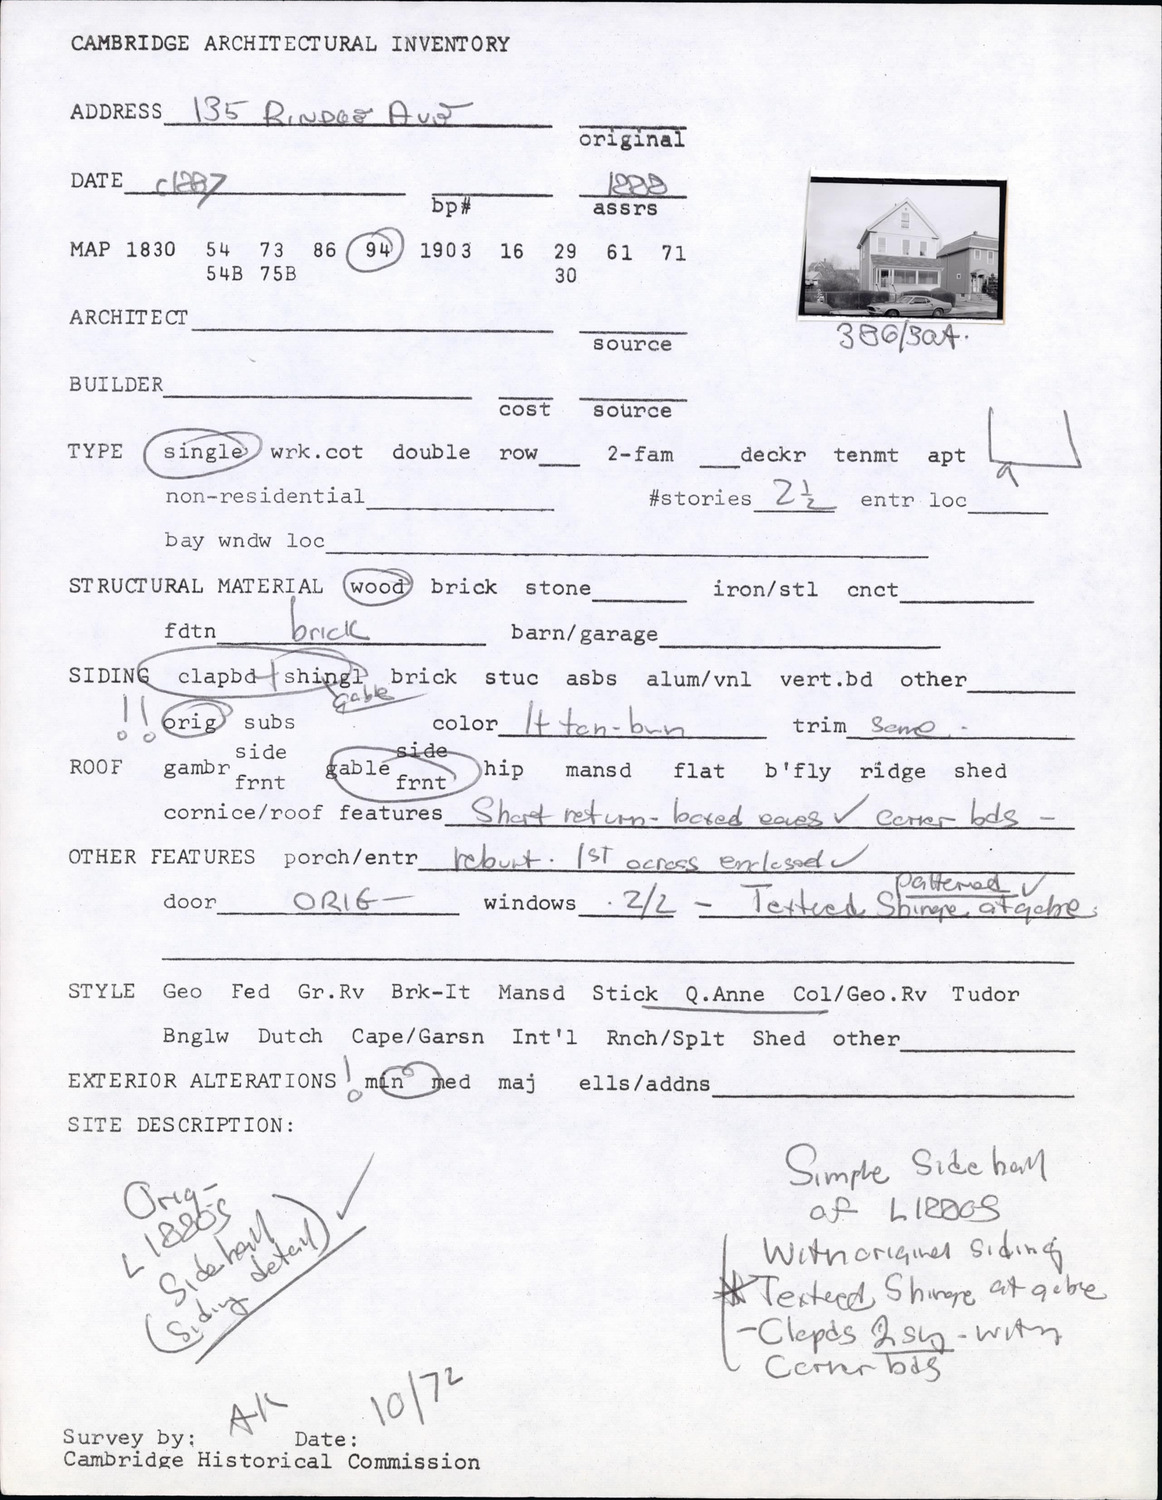 CAMBRIDGE ARCHITECTURAL INVENTORY
ADDRESS 135 RINDGE AVE
original
DATE c1887 1888
bp# assrs
MAP 1830 54 73 86 94 1903 16 29 61 71
54B 75B 30
ARCHITECT
source
386/30A.
BUILDER
cost source
TYPE single wrk.cot double row 2-fam deckr tenmt apt
non-residential #stories 2½ entr loc
bay wndw loc
STRUCTURAL MATERIAL wood brick stone iron/stl cnct
fdtn brick barn/garage
SIDING clapbd + shingl brick stuc asbs alum/vnl vert.bd other
gable
!! orig subs color lt tan-brn trim same -
side side
ROOF gambr gable hip mansd flat b'fly ridge shed
frnt frnt
cornice/roof features Short return - boxed eaves ✓ corner bds -
OTHER FEATURES porch/entr rebuilt. 1ST across enclosed ✓
patterned ✓
door ORIG - windows 2/2 - Textured Shingle at gable
STYLE Geo Fed Gr.Rv Brk-It Mansd Stick Q.Anne Col/Geo.Rv Tudor
Bnglw Dutch Cape/Garsn Int'l Rnch/Splt Shed other
EXTERIOR ALTERATIONS ! min med maj ells/addns
SITE DESCRIPTION:
Orig -
L 1880s
Sidehall
(Siding detail) ✓
Simple Sidehall
of L1880s
With original siding
* Textured Shingle at gable
- Clapds 2 sty - with
Corner bds
Survey by: AK Date: 10/72
Cambridge Historical Commission